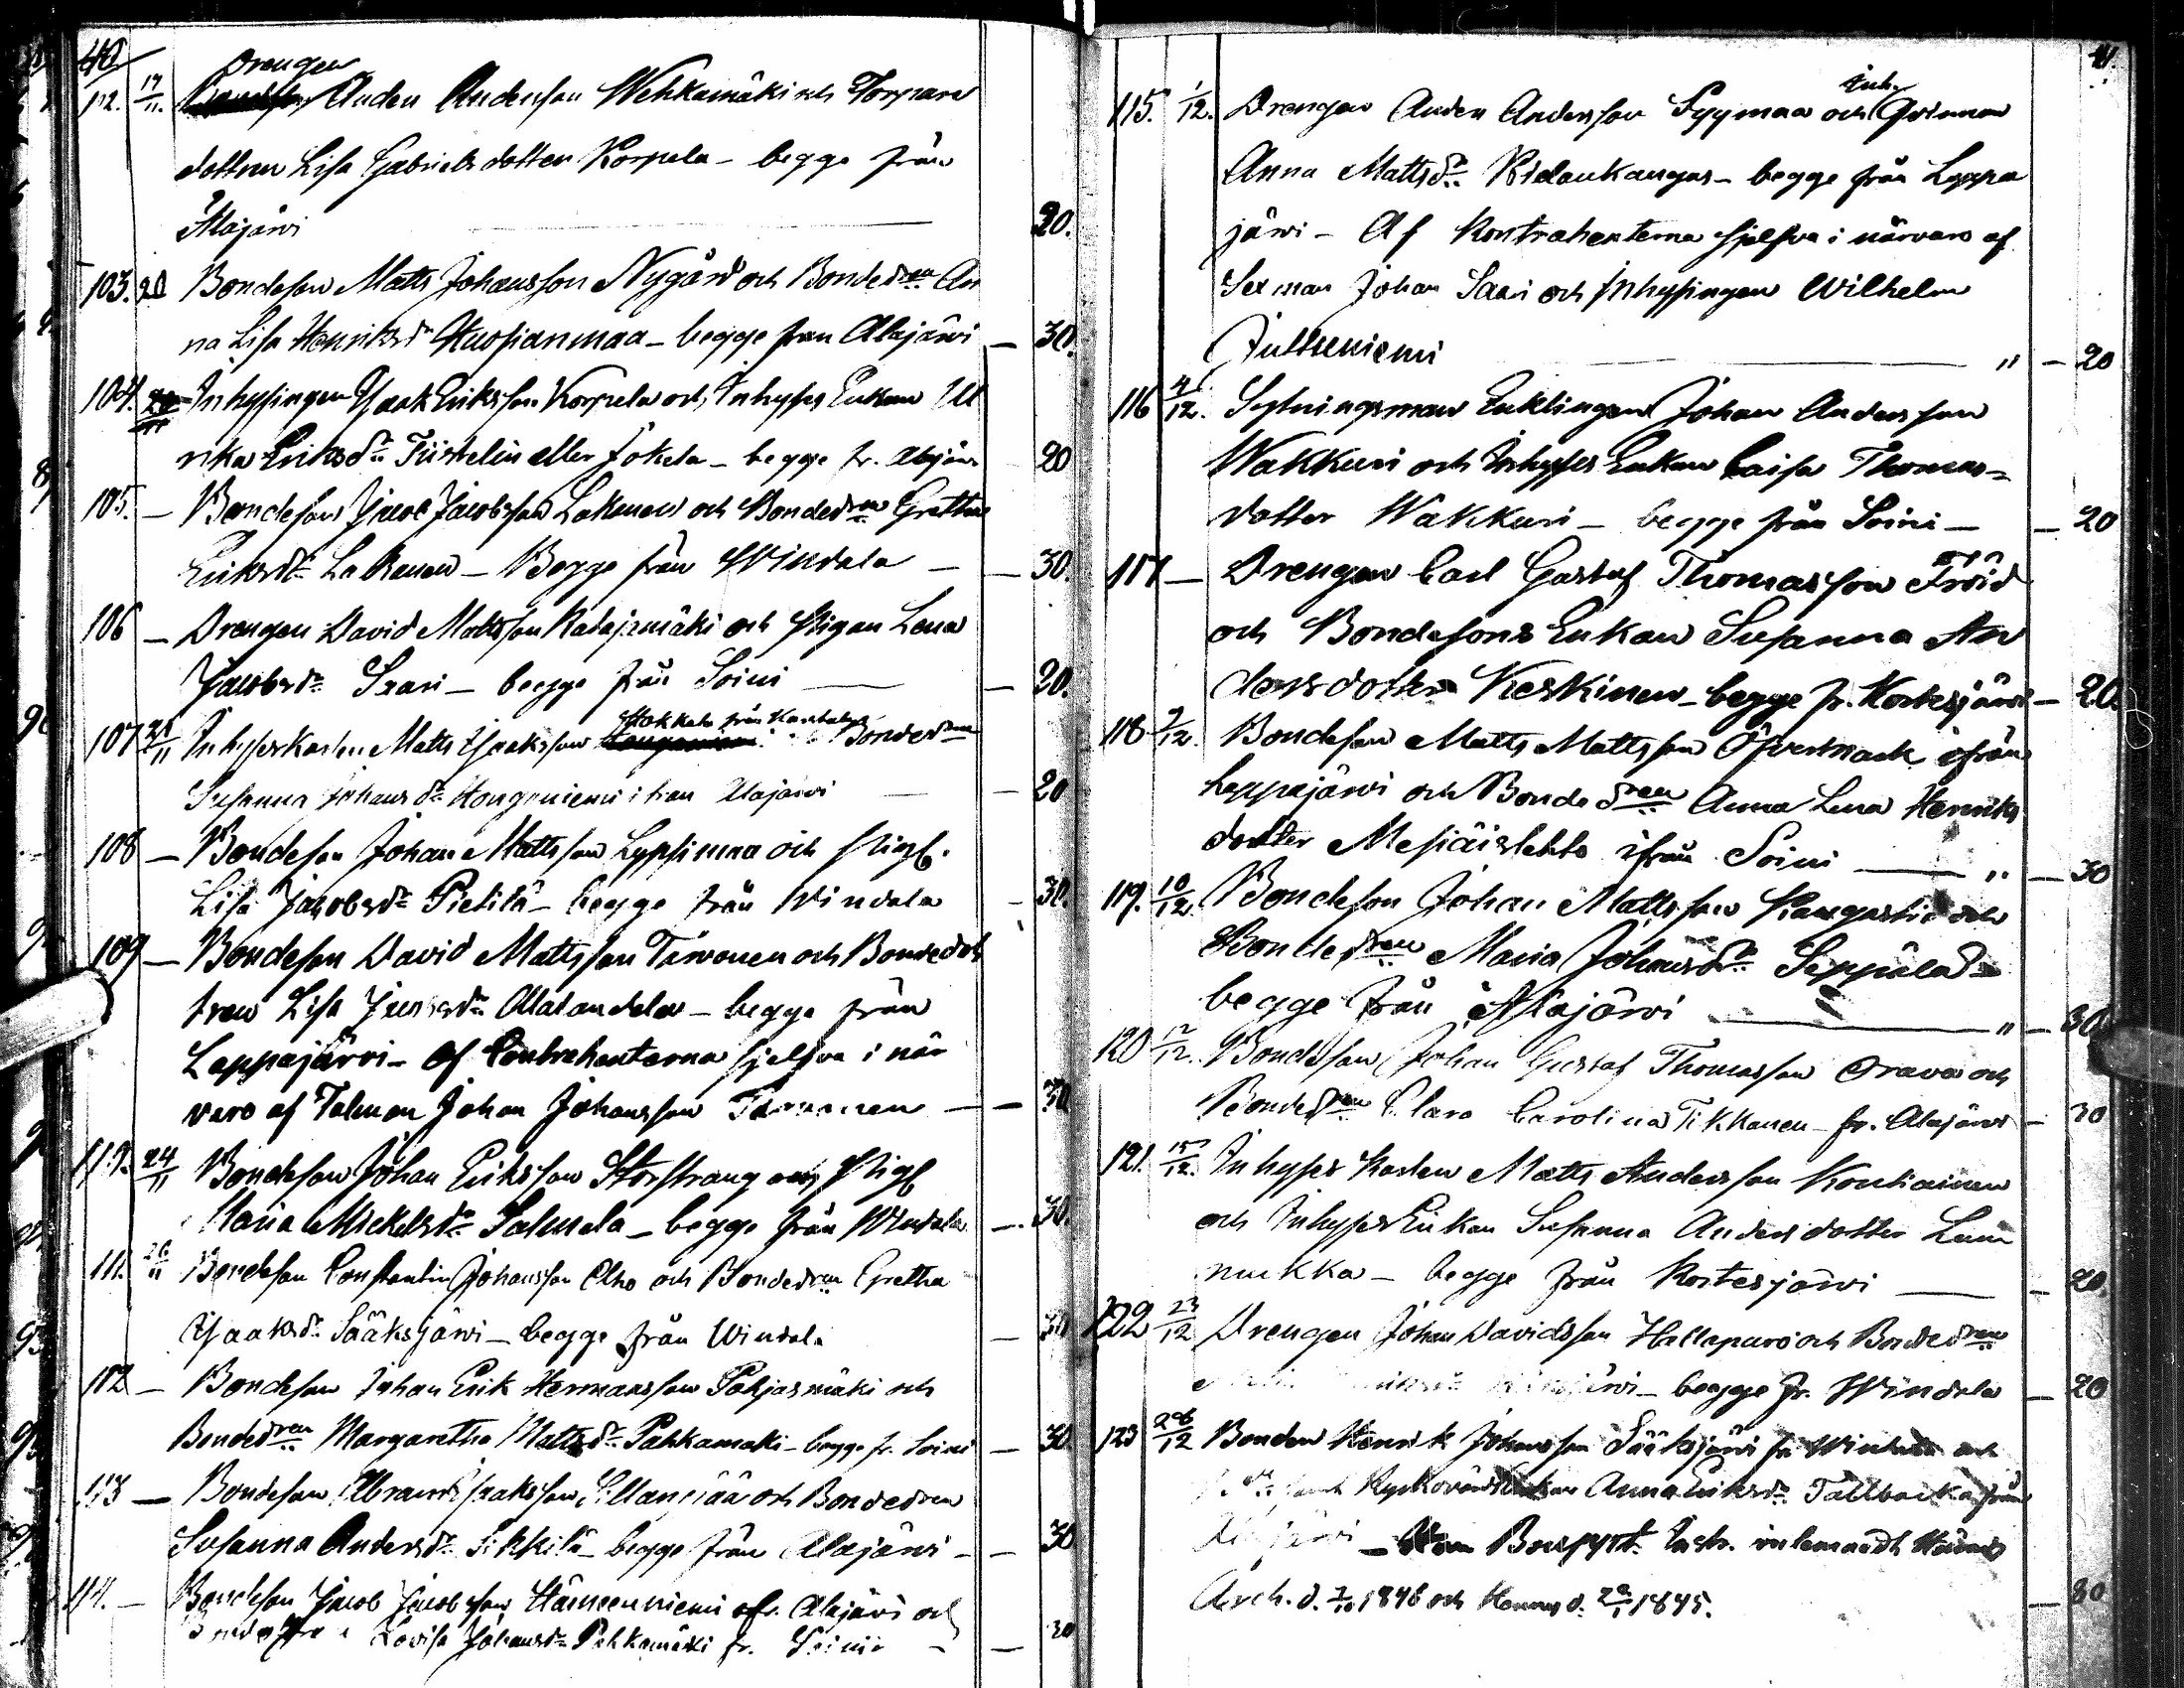 40
Drengen
102. 17/11. Anders Andersson Wehkamäki och Torpare
dottren Lisa Gabrielsdotter Korpela - begge från
Alajärvi 20.
103. 20 Bondeson Matts Johansson Nygård och Bondedren An
na Lisa Henriksdr Kuosianmaa - begge från Alajärvi - 30.
104. Inhysingen Isaak Eriksson Korpela och Inhyses Enkan Ul
rika Eriksdr eller Jokela - begge fr. Alajärvi 20
105. - Bondeson Jacob Jacobsson Lakanen och Bondedren Gretha
Eriksdr Lakanen - Begge från Windala - 30.
106 - Drengen David Mattsson Katajamäki och Pigan Lena
Jacobsdr Saari - begge från Soini - 20.
107 21/11 Inhyseskarlen Matts Isaksson Bondedren
Susanna Johansdr Kongoniemi ifrån Alajärvi - 20
108 - Bondeson Johan Mattsson Lyysimaa och Pigl.
Lisa Jacobsdr Pietilä - begge från Windala - 30.
109 - Bondeson David Mattsson Tarvonen och Bondedot
tren Lisa Alatandela - begge från
Lappajärvi - Af Contrahenterna sjelfva i när
varo af Tolman Johan Johansson - 30
110. 24/11 Bondeson Johan Eriksson Storstrang och Pigl
Maria Mickelsdr Salmela - begge från Windala - 30.
111. 26/11 Bondeson Constantin Johansson och Bondedren Gretha
Isaaksdr Sääksjärvi - begge från Windala - 30
112 - Bondeson Johan Erik Hermansson Pohjasmäki och
Bondedren Margaretha Mattsdr Pahkamäki - begge fr. Soini - 30
113 - Bondeson Abram Isaksson och Bondedren
Susanna Andersdr Sikkilä - begge från Alajärvi - 30
114. - Bondeson Jacob Jacobsson Hämeenniemi ifr. Alajärvi och
Lovisa Johansdr Pahkamäki fr. Soini - 30
41.
115. 1/12. Drengen Anders Andersson Syymaa och Inh. Qvinnan
Anna Mattsdr Kidankangas - begge från Lappa
järvi - Af Kontrahenterna sjelfva i närvaro af
Sexman Johan Saari och Inhysingen Wilhelm
" - 20
116 4/12. Sytningsman Enklingen Johan Andersson
Wakkuri och Inhyses Enkan Caisa Thomas-
dotter Wakkuri - begge från Soini - 20
117 - Drengen Carl Gustaf Thomasson Fröjd
och Bondesons Enkan Susanna An
dersdotter Keskinen - begge fr. Kortesjärvi - 20.
118 9/12. Bondeson Matts Mattsson Öfvermark ifrån
Lappajärvi och Bondedren Anna Lena Henriks
dotter Mesiäislehto ifrån Soini " - 30
119. 10/12. Bondeson Johan Mattsson Kangastie och
Bondedren Maria Johansdr Seppälä
begge från Alajärvi " - 30
120 12/12. Bondeson Johan Gustaf Thomasson Orava och
Bondedren Clara Carolina Tikkanen - fr. Alajärvi - 30
121. 15/12. Inhyses Karlen Matts Andersson Kontiainen
och Inhyses Enkan Susanna Andersdotter Lam
mukka - begge från Kortesjärvi - 20.
122 23/12 Drengen Johan Davidsson Hallapuro och Bondedren
begge fr. Windala - 20
123 26/12 Bonden Henrik Johansson Sääksjärvi fr. Windala och
Enkan Anna Eriksdr Tallbacka från
- Hans Bouppt. Instr. inlemnadt Härads
Arch. d. 7/10 1846 och Hennes d. 1845. - 80